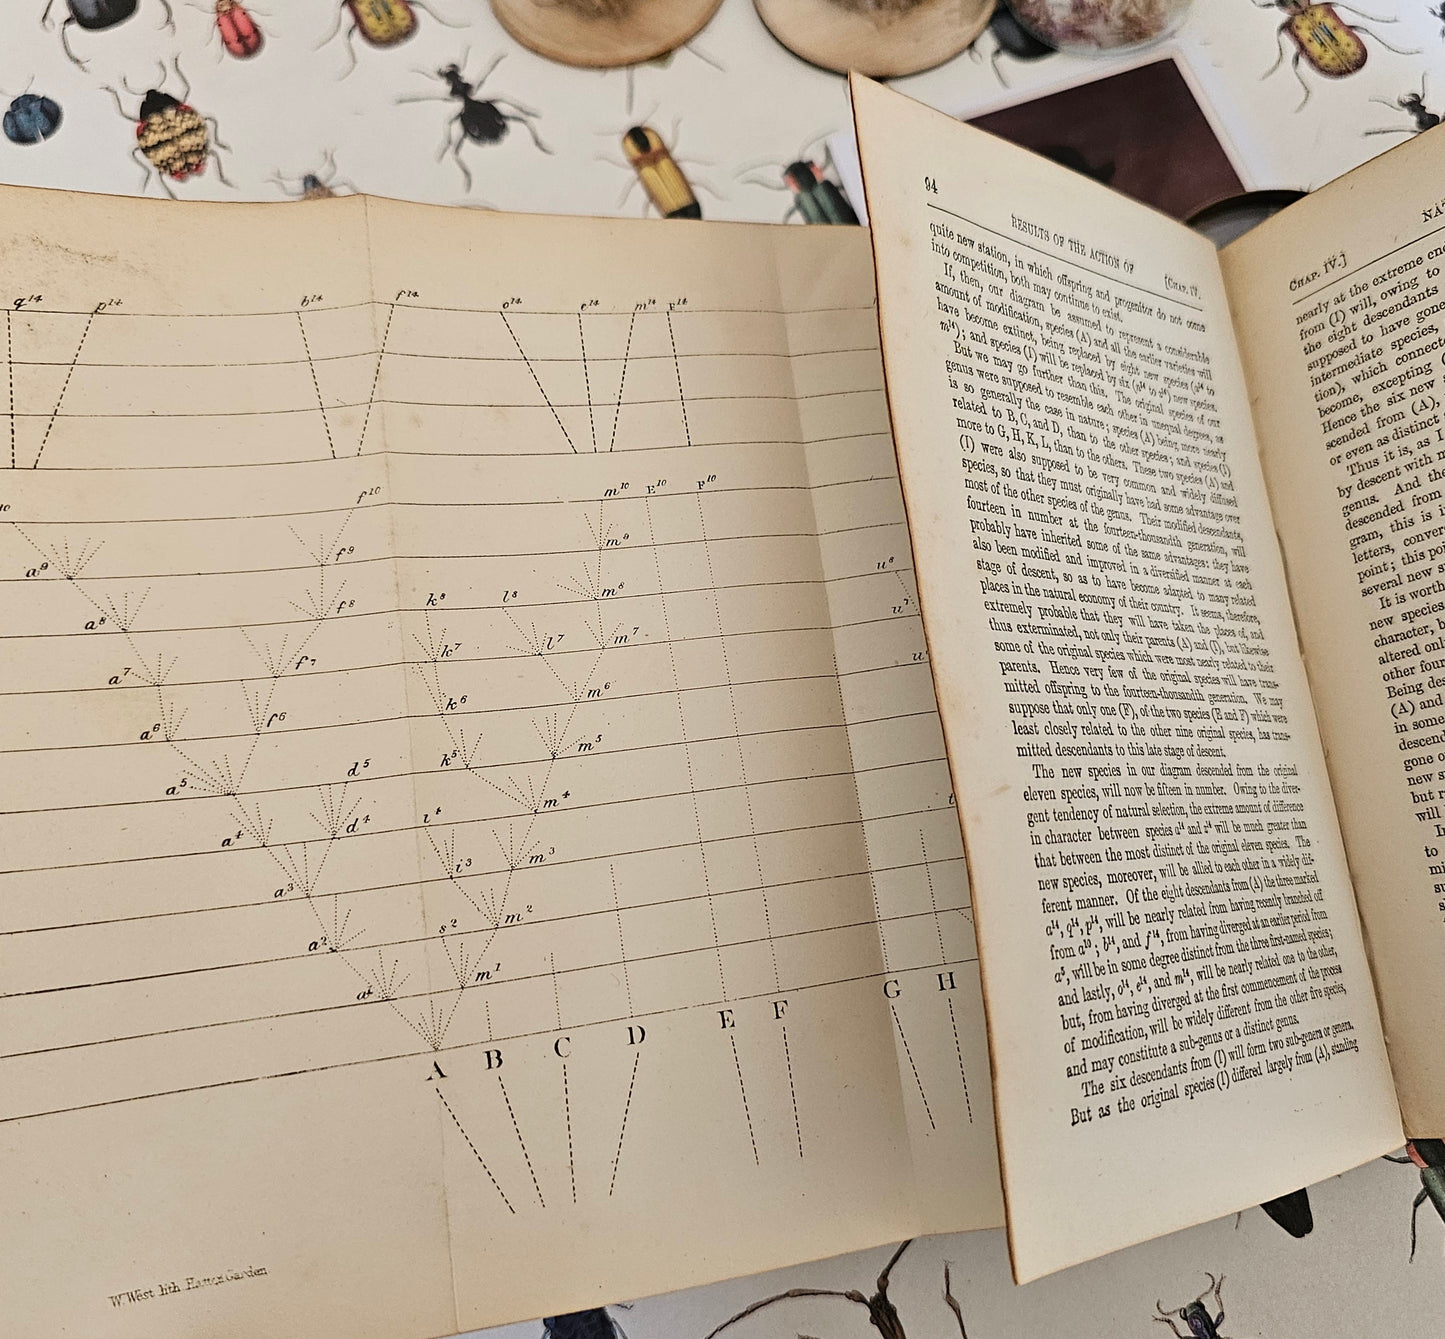 q¹⁴ p¹⁴ b¹⁴ f¹⁴ o¹⁴ e¹⁴ m¹⁴ F¹⁴
10 f¹⁰ m¹⁰ E¹⁰ F¹⁰
a⁹ f⁹ m⁹
a⁸ f⁸ k⁸ l⁸ m⁸ u⁸
a⁷ f⁷ k⁷ l⁷ m⁷ u⁷
a⁶ f⁶ k⁶ m⁶ u
a⁵ d⁵ k⁵ m⁵
a⁴ d⁴ i⁴ m⁴ t
a³ i³ m³
a² s² m²
a¹ m¹
A B C D E F G H
W. West lith. Hatton Garden
94
RESULTS OF THE ACTION OF [CHAP. IV.
quite new station, in which offspring and progenitor do not come
into competition, both may continue to exist.
If, then, our diagram be assumed to represent a considerable
amount of modification, species (A) and all the earlier varieties will
have become extinct, being replaced by eight new species (a¹⁴ to
m¹⁴); and species (I) will be replaced by six (n¹⁴ to z¹⁴) new species.
But we may go further than this. The original species of our
genus were supposed to resemble each other in unequal degrees, as
is so generally the case in nature; species (A) being more nearly
related to B, C, and D, than to the other species; and species (I)
more to G, H, K, L, than to the others. These two species (A) and
(I) were also supposed to be very common and widely diffused
species, so that they must originally have had some advantage over
most of the other species of the genus. Their modified descendants,
fourteen in number at the fourteen-thousandth generation, will
probably have inherited some of the same advantages: they have
also been modified and improved in a diversified manner at each
stage of descent, so as to have become adapted to many related
places in the natural economy of their country. It seems, therefore,
extremely probable that they will have taken the places of, and
thus exterminated, not only their parents (A) and (I), but likewise
some of the original species which were most nearly related to their
parents. Hence very few of the original species will have trans-
mitted offspring to the fourteen-thousandth generation. We may
suppose that only one (F), of the two species (E and F) which were
least closely related to the other nine original species, has trans-
mitted descendants to this late stage of descent.
The new species in our diagram descended from the original
eleven species, will now be fifteen in number. Owing to the diver-
gent tendency of natural selection, the extreme amount of difference
in character between species a¹⁴ and z¹⁴ will be much greater than
that between the most distinct of the original eleven species. The
new species, moreover, will be allied to each other in a widely dif-
ferent manner. Of the eight descendants from (A) the three marked
a¹⁴, q¹⁴, p¹⁴, will be nearly related from having recently branched off
from a¹⁰; b¹⁴, and f¹⁴, from having diverged at an earlier period from
a⁵, will be in some degree distinct from the three first-named species;
and lastly, o¹⁴, e¹⁴, and m¹⁴, will be nearly related one to the other,
but, from having diverged at the first commencement of the process
of modification, will be widely different from the other five species,
and may constitute a sub-genus or a distinct genus.
The six descendants from (I) will form two sub-genera or genera.
But as the original species (I) differed largely from (A), standing
CHAP. IV.]
nearly at the extreme
from (I) will, owing to
the eight descendants
supposed to have gone
intermediate species,
tion), which
become, excepting
Hence the six new
scended from (A),
or even as distinct
Thus it is, as I
by descent with
genus. And the
descended from
gram, this is
letters,
point; this
several new
It is worth
new species
character,
altered
other four
Being
(A) and
in some
descend
gone
new
but
will
to